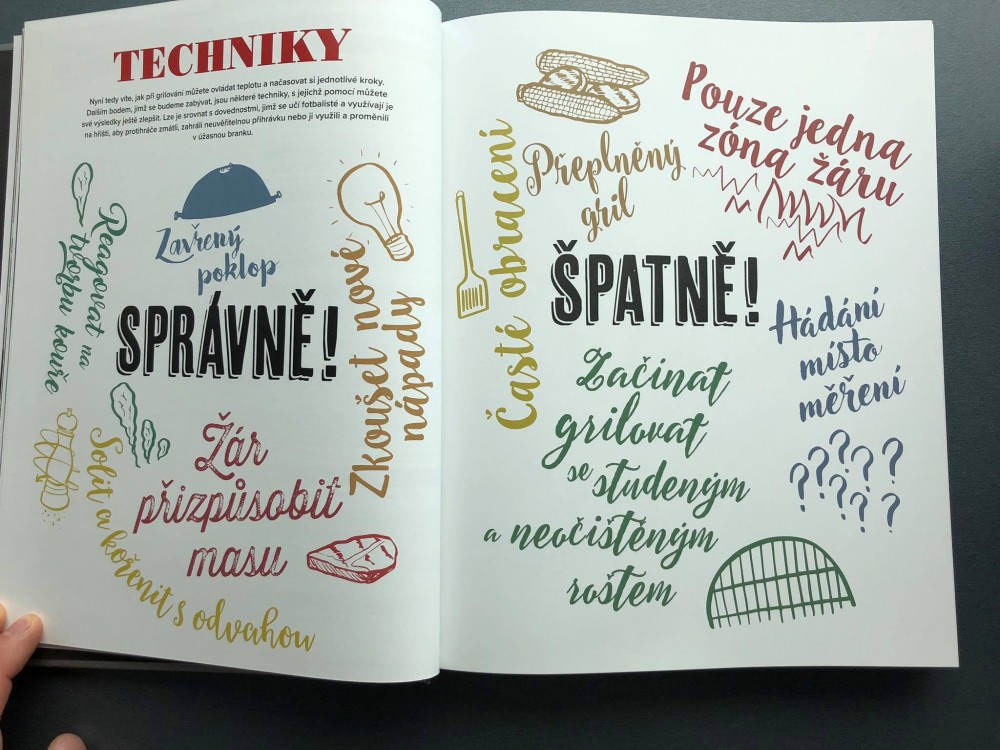 TECHNIKY
Nyní tedy víte, jak při grilování můžete ovládat teplotu a načasovat si jednotlivé kroky.
Dalším bodem, jímž se budeme zabývat, jsou některé techniky, s jejichž pomocí můžete
své výsledky ještě zlepšit. Lze je srovnat s dovednostmi, jimž se učí fotbalisté a využívají je
na hřišti, aby protihráče zmátli, zahráli neuvěřitelnou přihrávku nebo ji využili a proměnili
v úžasnou branku.
Reagovat na
tvorbu kouře
Zavřený
poklop
Zkoušet nové
nápady
SPRÁVNĚ!
Žár
přizpůsobit
masu
Solit a kořenit s odvahou
Časté obracení
Přeplněný
gril
Pouze jedna
zóna žáru
ŠPATNĚ!
Hádání
místo
měření
Začínat
grilovat
se studeným
a neočištěným
roštem
? ? ? ? ? ? ? ? ?